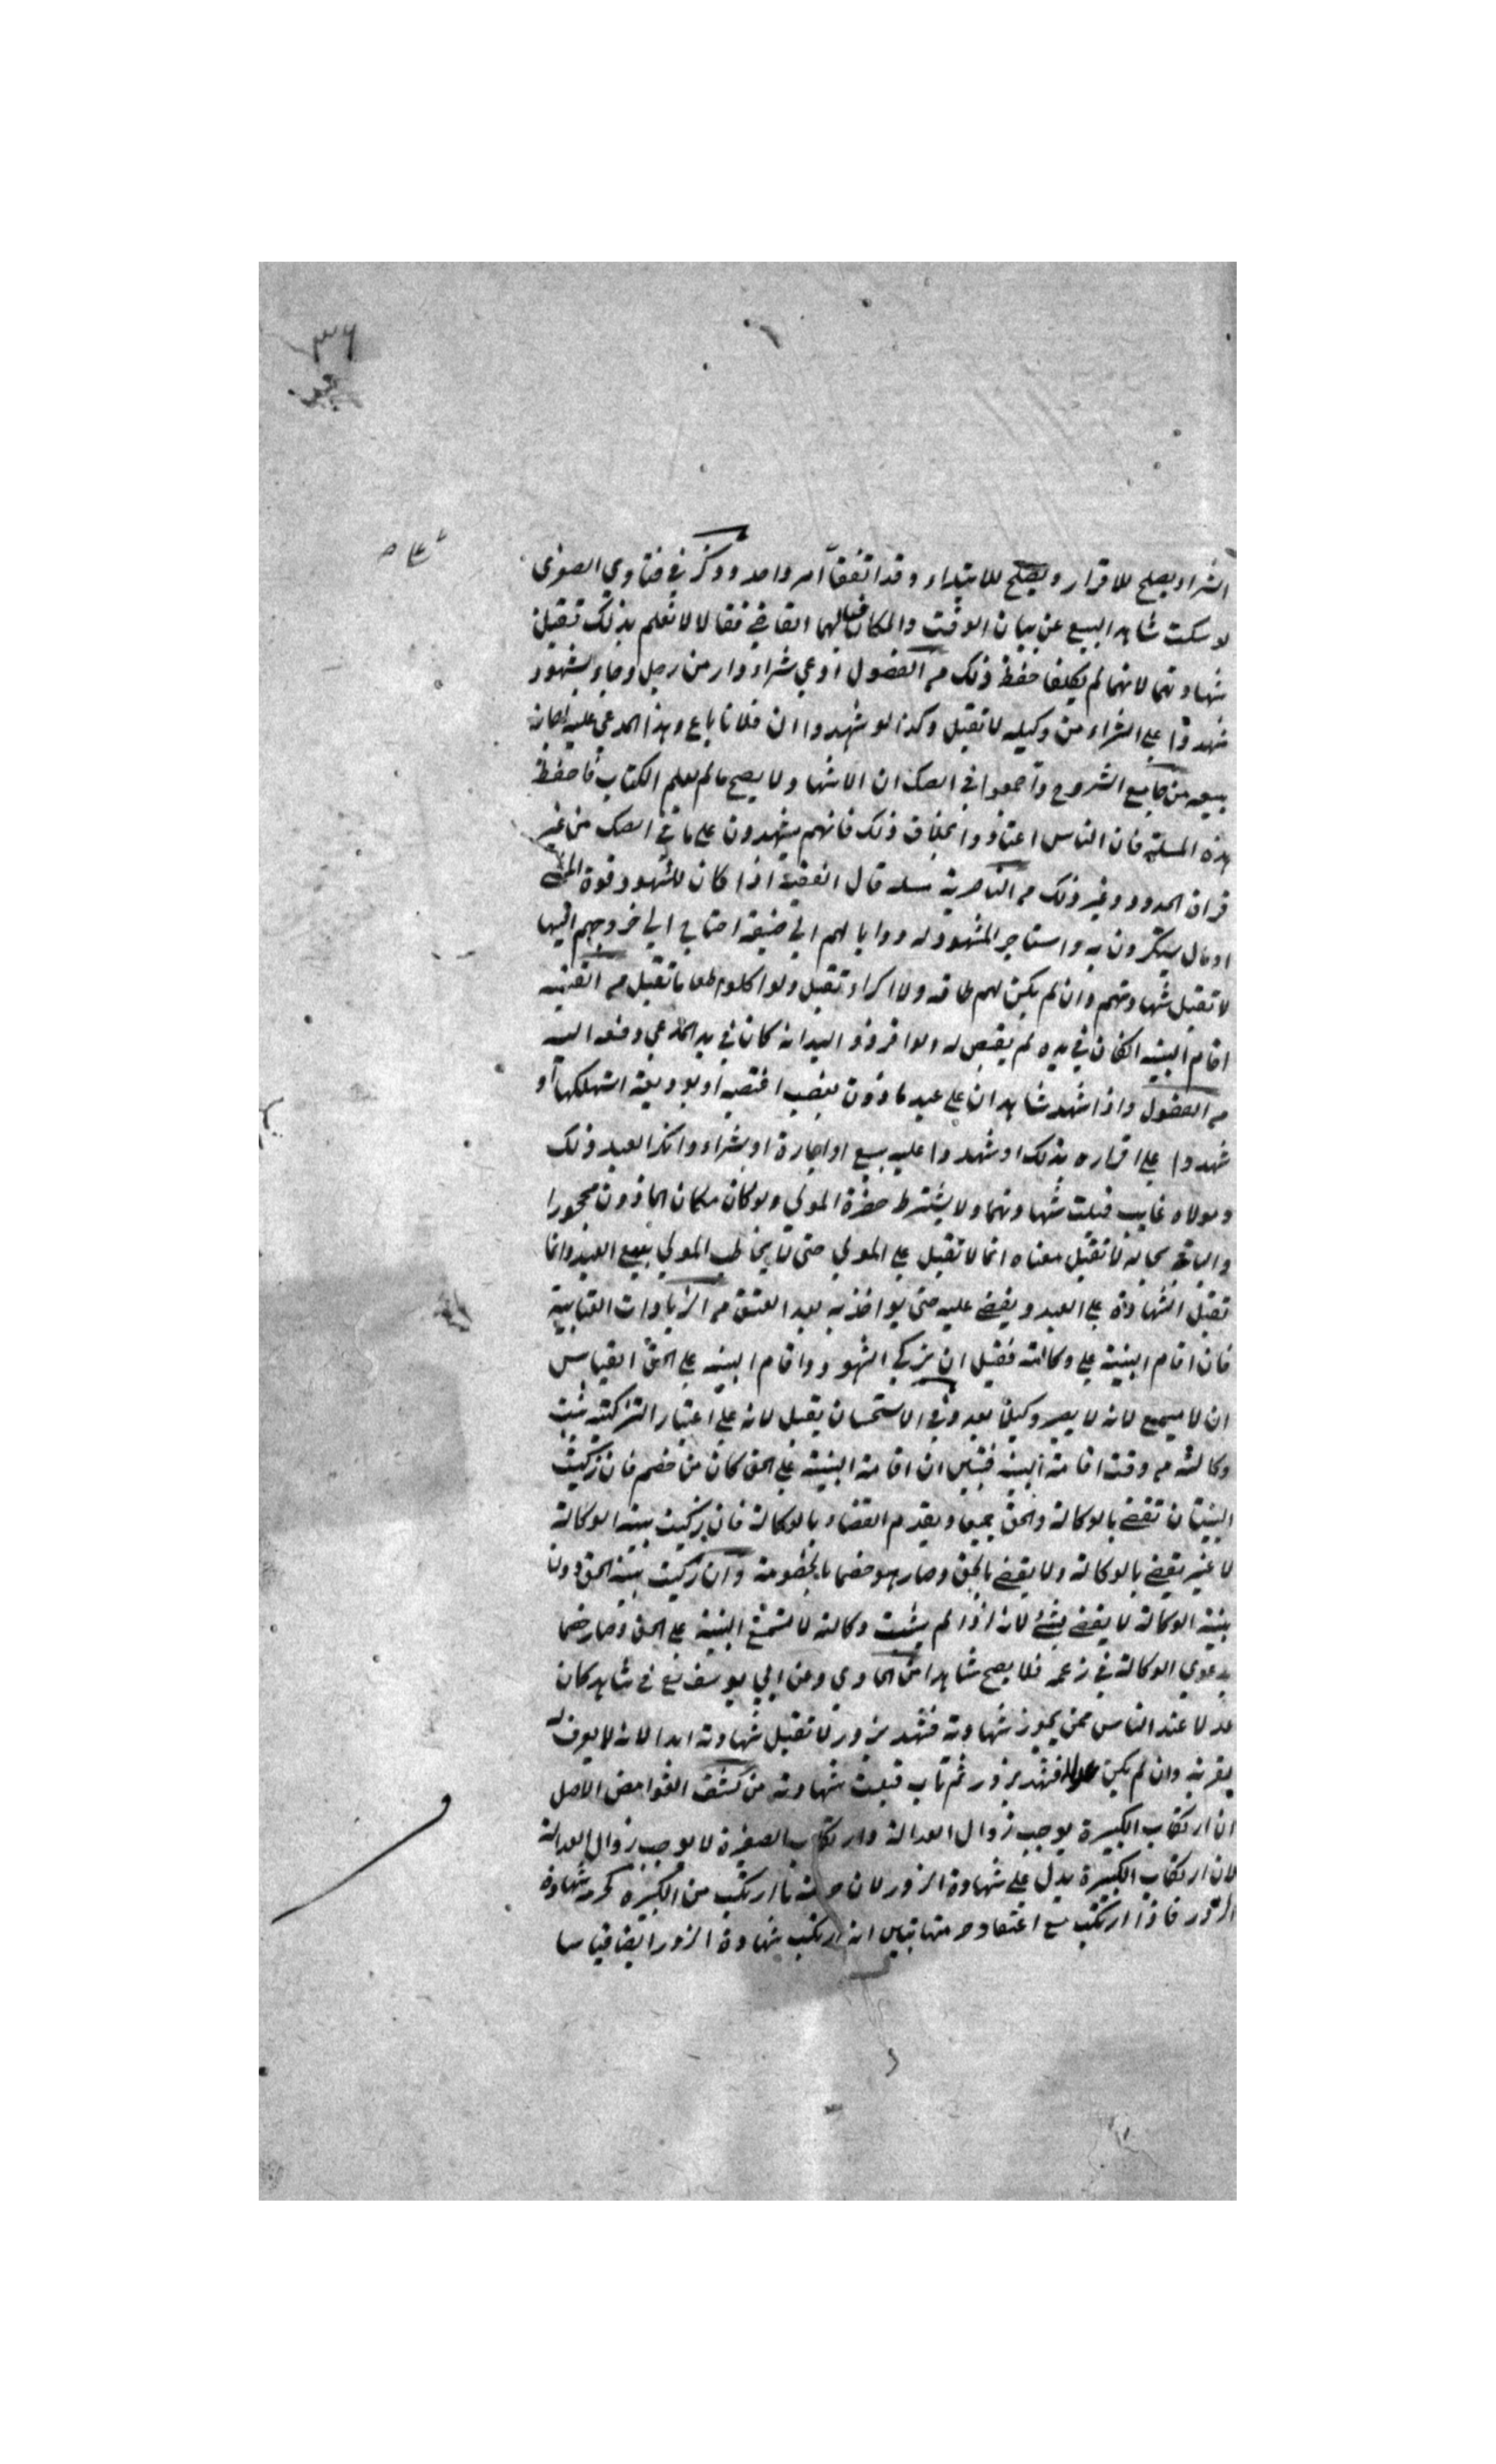 ٣٦
الشراء يصلح للاقرار ويصلح للابتداء وقد اتفقا امر واحد وذكر في فتاوي الصغرى
لو سكت شاهد البيع عن بيان الوقت والمكان فسالهما القاضي فقالا لا نعلم بذلك تقبل
شهادتهما لانهما لم يكلفا حفظ ذلك من الفصول ادعي شراء دار من رجل وجاء بشهود
شهدوا علي الشراء من وكيله لا تقبل وكذا لو شهدوا ان فلانا باع وهذا المدعي عليه اجاز
بيعه من جامع الشروح واجمعوا في الصك ان الاشهاد لا يصح ما لم يعلم الكتاب فاحفظ
هذه المسئلة فان الناس اعتادوا بخلاف ذلك فانهم يشهدون علي ما في الصك من غير
قراة الحدود وغير ذلك من الناصرية قال الفقيه اذا كان للشهود قوة المشي
او مال يستكرون به واستاجر المشهود له دوابا لهم الي ضيعة احتاج الي خروجهم اليها
لا تقبل شهادتهم وان لم يكن لهم طاقة ولا كراء تقبل ولو اكلوا طعاما تقبل من القنية
اقام البينة انه كان في يده لم يقض له ولو اقر ذو اليد انه كان في يد المدعي دفعه اليه
من الفصول واذا شهد شاهدان علي عبد ماذون بغصب اغتصبه او بوديعة استهلكها او
شهدوا علي اقراره بذلك او شهدوا عليه ببيع او اجارة او بشراء وانكر العبد ذلك
ومولاه غايب قبلت شهادتهما ولا يشترط حضرة المولي ولو كان مكان الماذون محجورا
والباقي بحاله لا تقبل معناه انما لا تقبل علي المولي حتى لا يخاطب المولي ببيع العبد وانما
تقبل الشهادة علي العبد ويقضي عليه حتى يواخذ به بعد العتق من الزيادات العتابية
فان اقام البينة علي وكالته فقبل ان يزكي الشهود واقام البينة علي الحق القياس
ان لا يسمع لانه لا يصير وكيلا بعد وفي الاستحسان يقبل لانه علي اعتبار التزكية يثبت
وكالته من وقت اقامة البينة فتبين ان اقامة البينة علي الحق كان من خصم فان زكيت
البينتان تقضي بالوكالة والحق جميعا ويقدم القضاء بالوكالة فان زكيت بينة الوكالة
لا غير يقضي بالوكالة ولا يقضي بالحق وصار هو خصما بالخصومة وان زكيت بينة الحق دون
بينة الوكالة لا يقضي بشئ لانه اذا لم يثبت وكالته لا تسمع البينة علي الحق وصار خصما
بدعوي الوكالة في زعمه فلا يصح شاهدا من الحاوي وعن ابي يوسف في شاهد كان
عدلا عند الناس ممن يجوز شهادته فشهد بزور لا تقبل شهادته ابدا لانه لا يعرف له
وان لم يكن عدلا فشهد بزور ثم تاب قبلت شهادته من كشف الغوامض الاصل
ان ارتكاب الكبيرة يوجب زوال العدالة وارتكاب الصغيرة لا يوجب زوال العدالة
لان ارتكاب الكبيرة يدل علي شهادة الزور لان حرمة ما ارتكب من الكبيرة كحرمة شهادة
الزور فاذا ارتكب مع اعتقاد حرمتها تبين انه ارتكب شهادة الزور ايضا قياسا